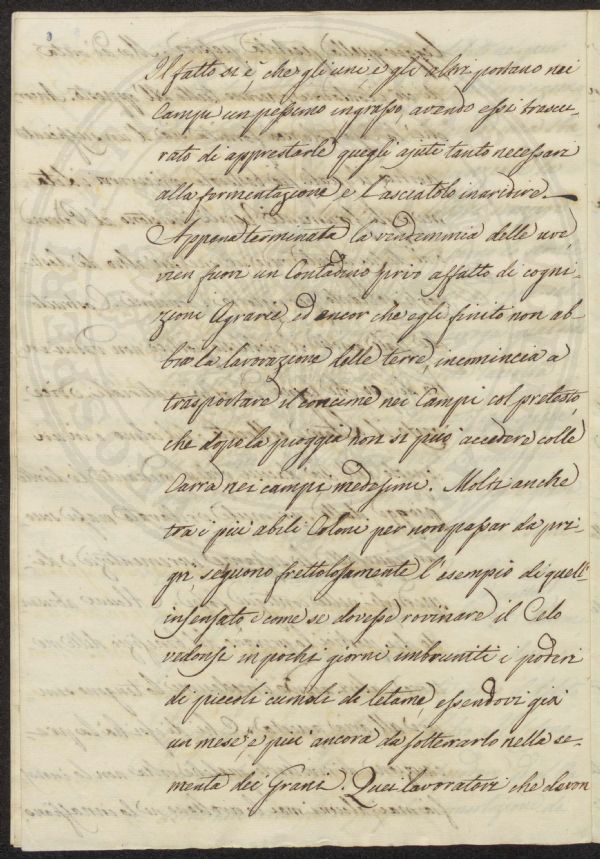 Il fatto si è, che gli uni e gli altri portano nei
Campi un pessimo ingrasso, avendo essi trascu-
rato di apprestarle quegli ajuti tanto necessari
alla fermentazione e lasciatolo inaridire. —
Appena terminata la vendemmia delle uve,
vien fuori un Contadino privo affatto di cogni-
zioni Agrarie, ed ancor che egli finito non ab-
bia la lavorazione delle terre, incomincia a
trasportare il concime nei Campi col pretesto,
che dopo la pioggia non si può accedere colle
Carra nei campi medesimi. Molti anche
tra i più abili Coloni per non passar da pri-
gri, seguono frettolosamente l'esempio di quell'
insensato e come se dovesse rovinare il Celo
vedonsi in pochi giorni imbruniti i poderi
di piccoli cumoli di letame, essendovi già
un mese, e più ancora da sotterrarlo nella se-
menta dei Grani. Quei lavoratori che devon